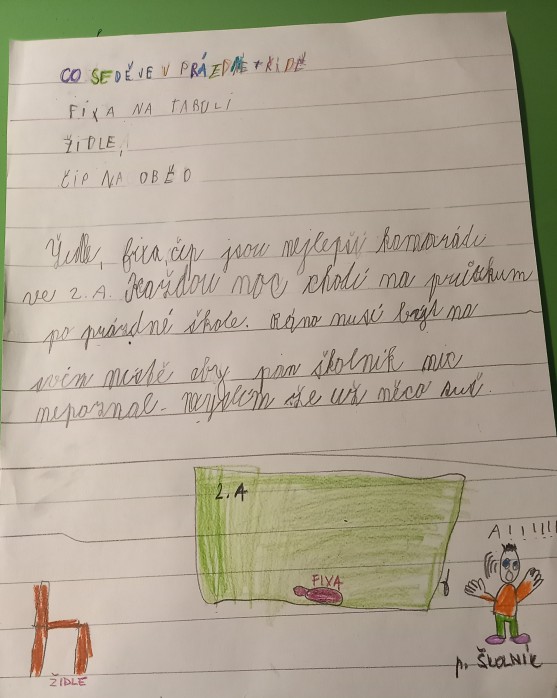 CO SE DĚJE V PRÁZDNÉ TŘÍDĚ
FIXA NA TABULI
ŽIDLE,
ČIP NA OBĚD
Židle, fixa, čip jsou nejlepší kamarádi
ve 2. A. Každou noc chodí na průzkum
po prázdné škole. Ráno musí být na
svém místě aby pan školník nic
nepoznal. Myslím že už něco tuší.
2. A
A!!!!!!
FIXA
ŽIDLE
p. ŠKOLNÍK